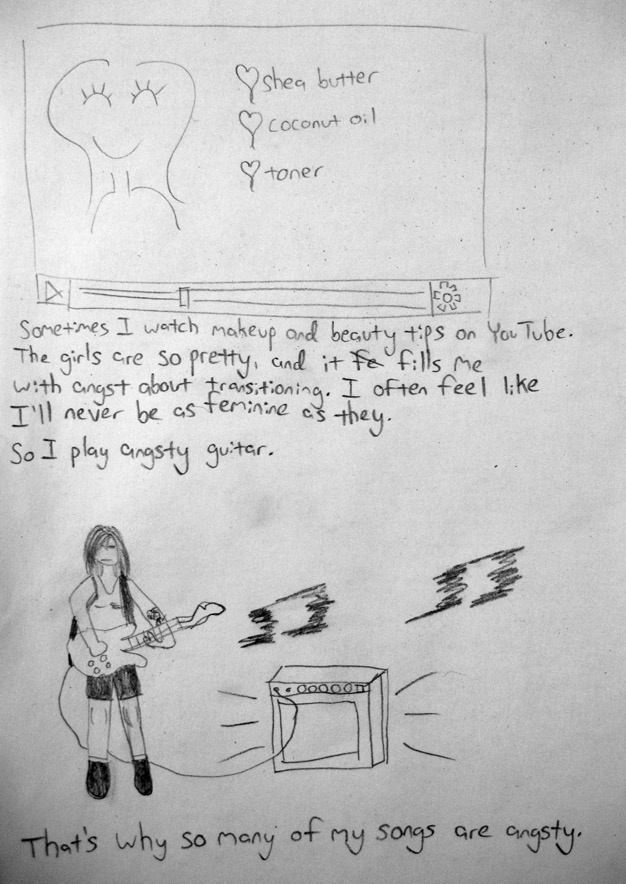 shea butter
coconut oil
toner
Sometimes I watch makeup and beauty tips on YouTube.
The girls are so pretty, and it fills me
with angst about transitioning. I often feel like
I'll never be as feminine as they.
So I play angsty guitar.
That's why so many of my songs are angsty.